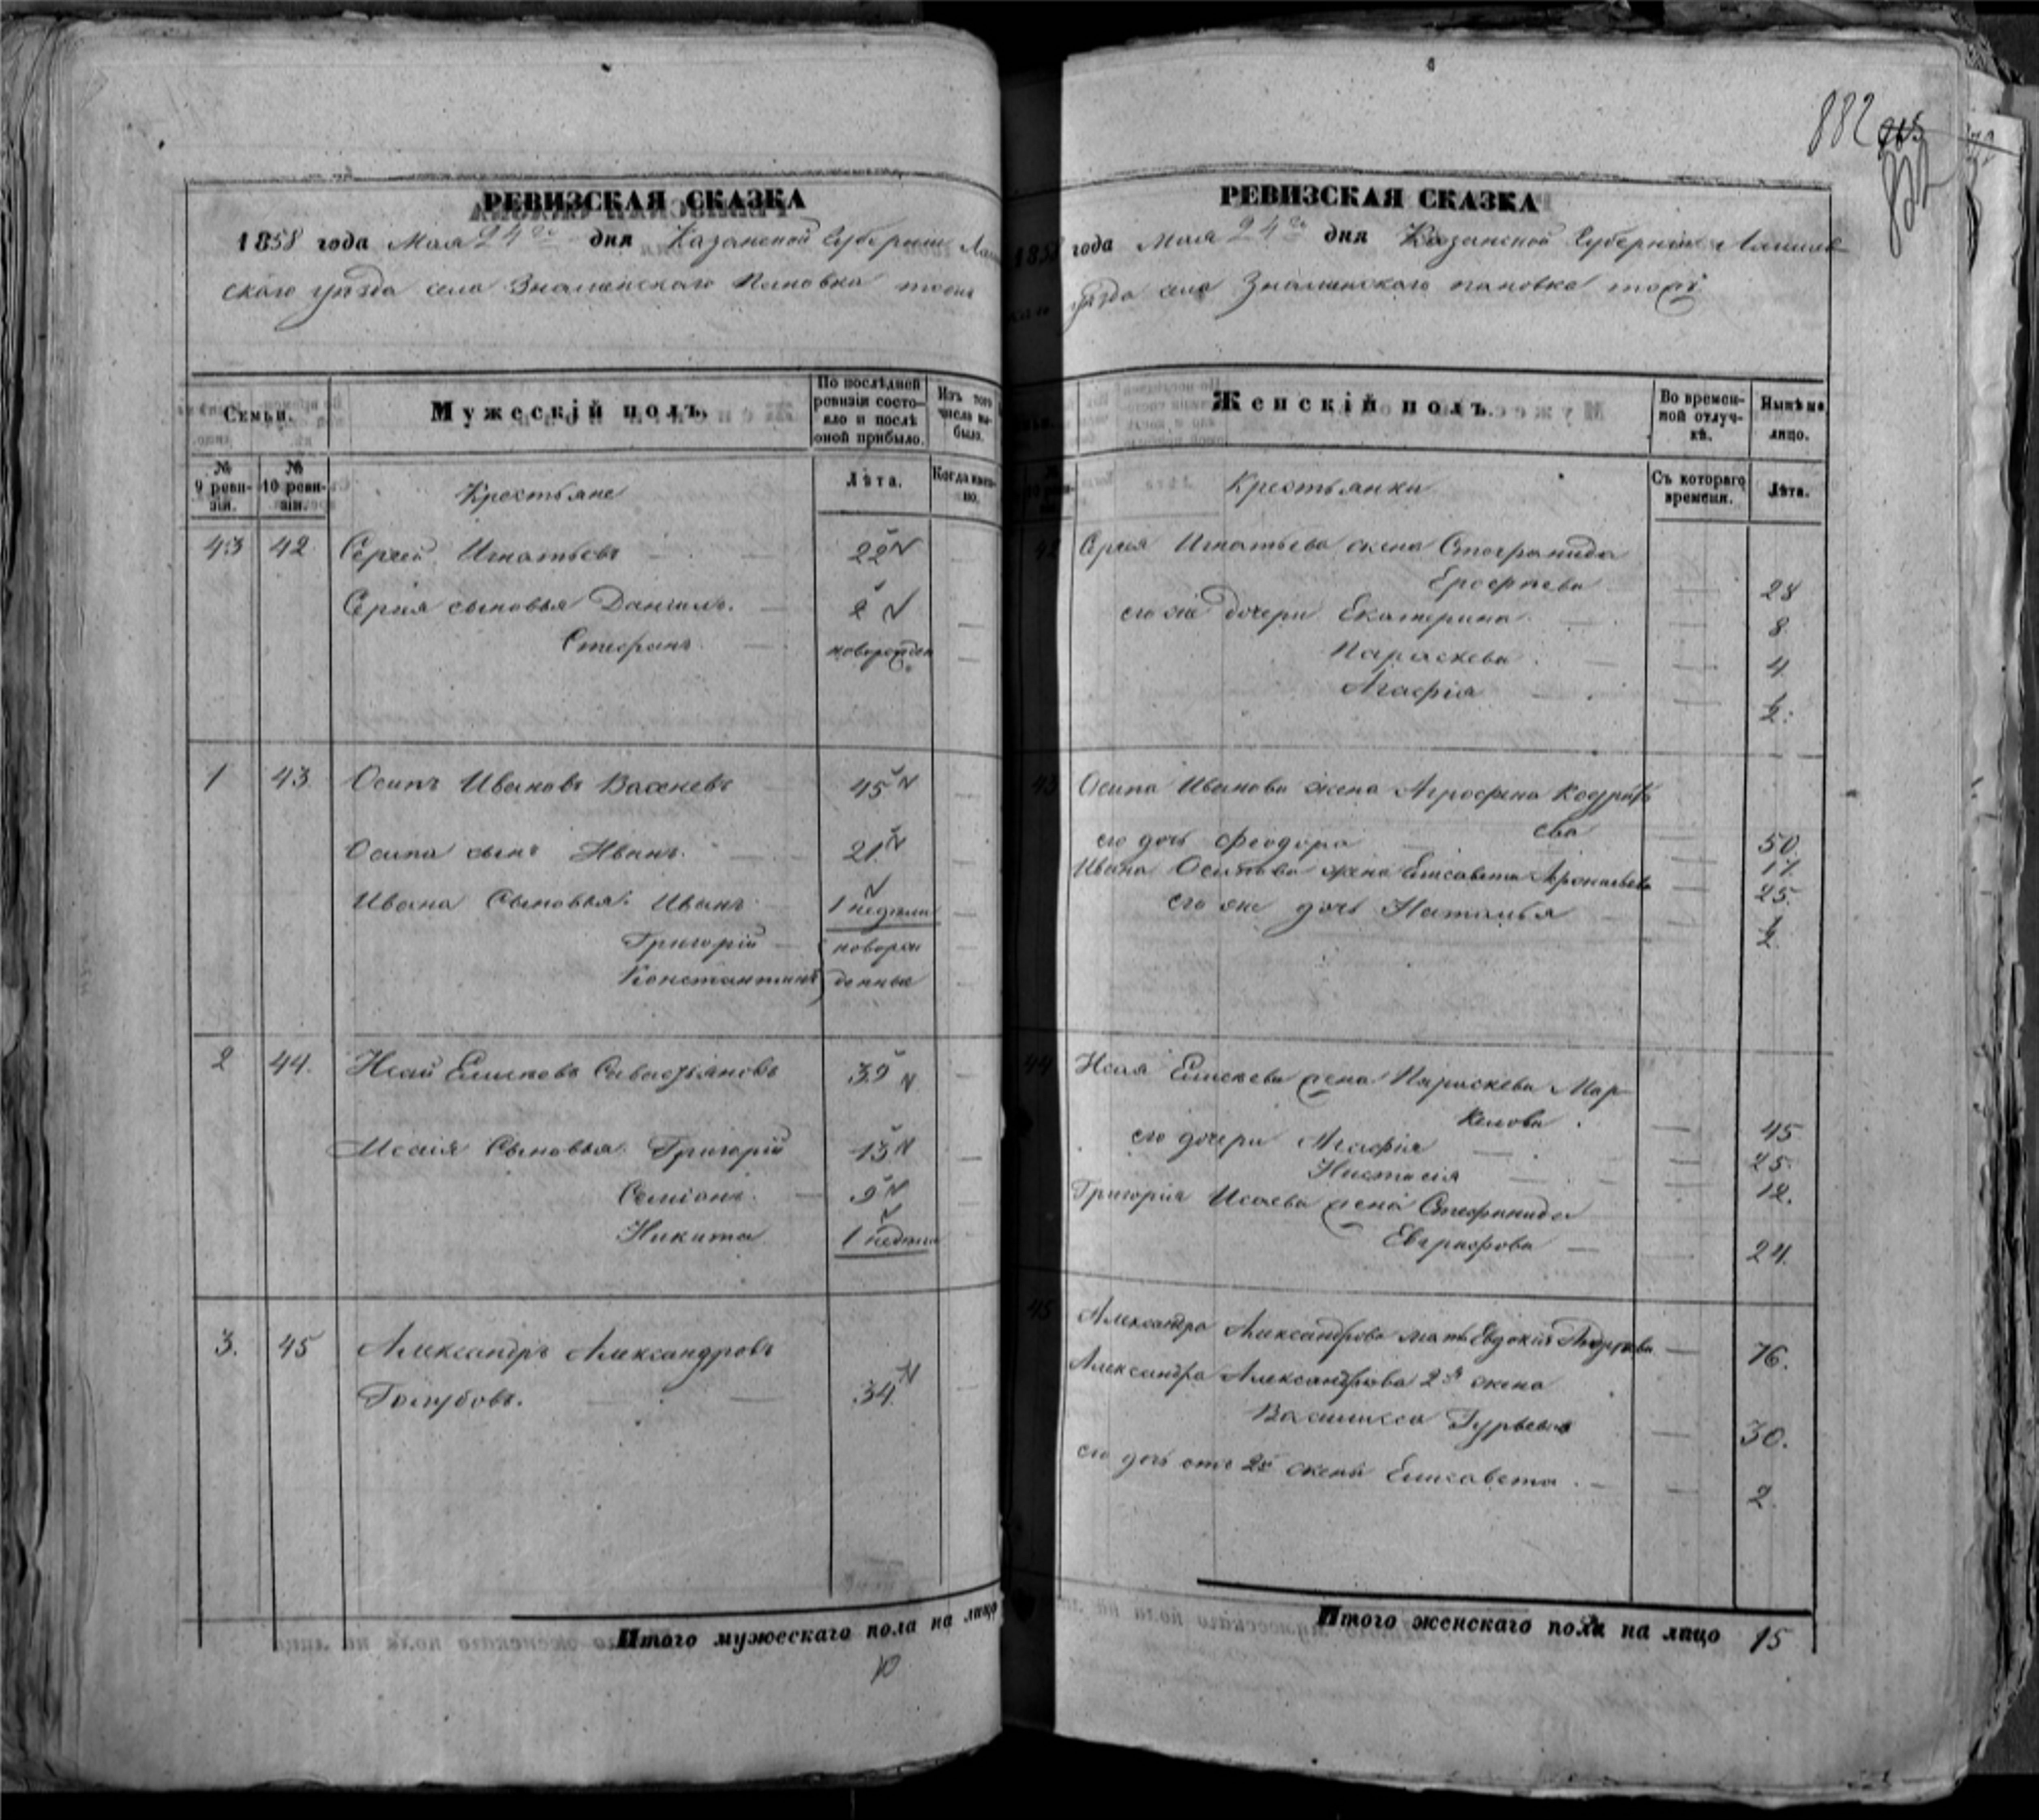 882
РЕВИЗСКАЯ СКАЗКА
1858 года Мая 24го дня Казанской Губернии
ского уѣзда села Знаменскаго Пановка тожъ
Семьи.
Мужескій полъ.
По послѣдней ревизіи состояло и послѣ оной прибыло.
Изъ того числа выбыло.
№ 9 ревизіи.
№ 10 ревизіи.
Крестьяне
Лѣта.
Когда именно.
43 42 Сергей Игнатьевъ 22
Сергея сыновья Данило. 2
Стефанъ новорожден
1 43 Осипъ Ивановъ 45
Осипа сынъ Иванъ. 21
Ивана Сыновья: Иванъ 1 недѣли
Григорій новорож
Константинъ денные
2 44. Исай Елисеевъ Савастьяновъ 39
Исаія Сыновья Григорій 13
Семіонъ 9
Никита 1 недѣли
3. 45 Александръ Александровъ
Голубовъ. 34
Итого мужескаго пола на лицо
10
РЕВИЗСКАЯ СКАЗКА
1858 года Мая 24го дня Казанской Губерніи Лаишев
уѣзда села Знаменскаго пановка тожъ
Женскій полъ.
Во временной отлучкѣ.
Нынѣ на лицо.
Крестьянки
Съ котораго времени.
Лѣта.
42 Сергея Игнатьева жена Стефанида
Ерофѣева 28
его же дочери Екатерина 8
Параскева 4
Агафія 1/2
43 Осипа Иванова жена Агрофена Кодрать
ева 50
его дочь Феодора 17
Ивана Осипова жена Елисавета 25
его же дочь Наталья 1/2
44 Исая Елисеева жена Параскева Мар
келова 45
его дочери Агафія 25
Настасія 12.
Григорія Исаева жена Стефанида
Евграфова 24
45 Александра Александрова мать Евдокия 76.
Александра Александрова 2я жена
Василиса Гурьева 30.
его дочь отъ 2й жены Елисавета 2.
Итого женскаго пола на лицо 15